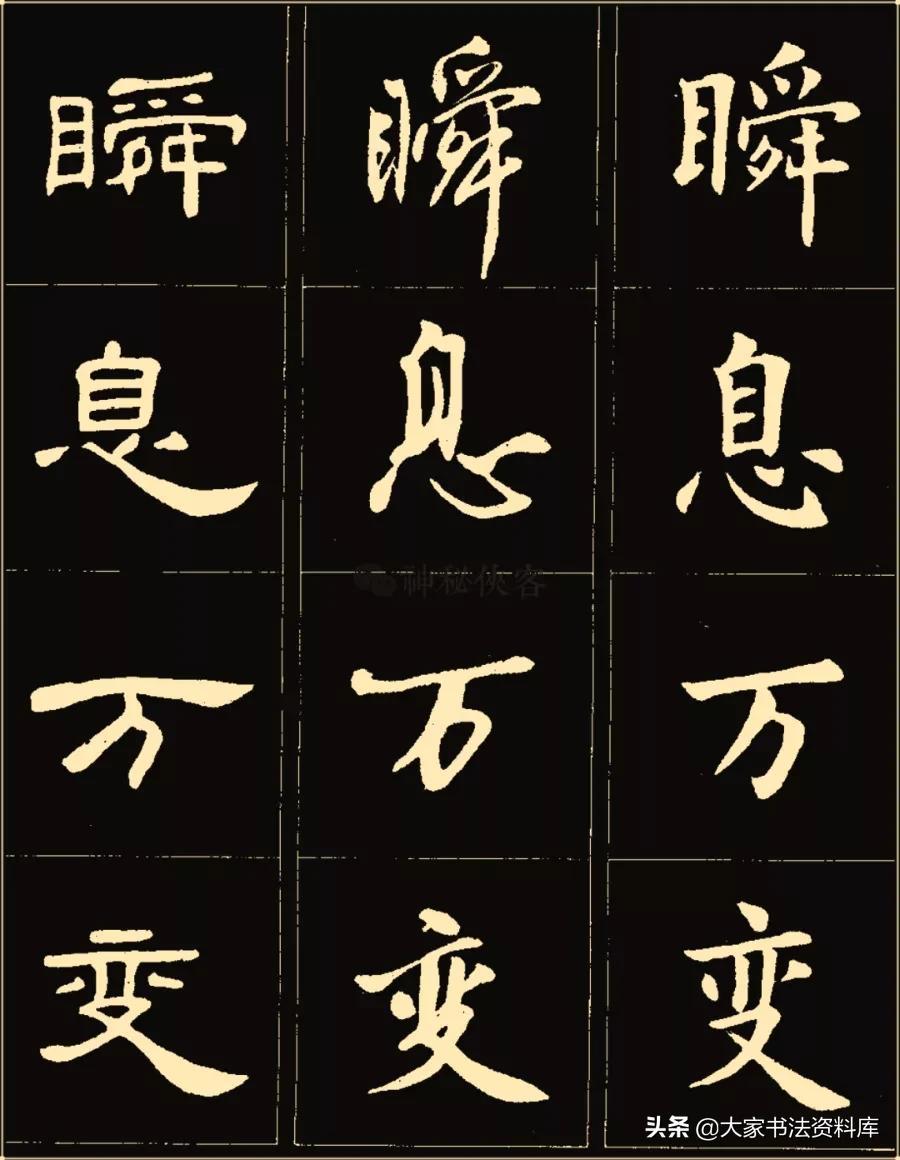 瞬瞬瞬
息息息
万万万
变变变
神秘侠客
头条@大家书法资料库